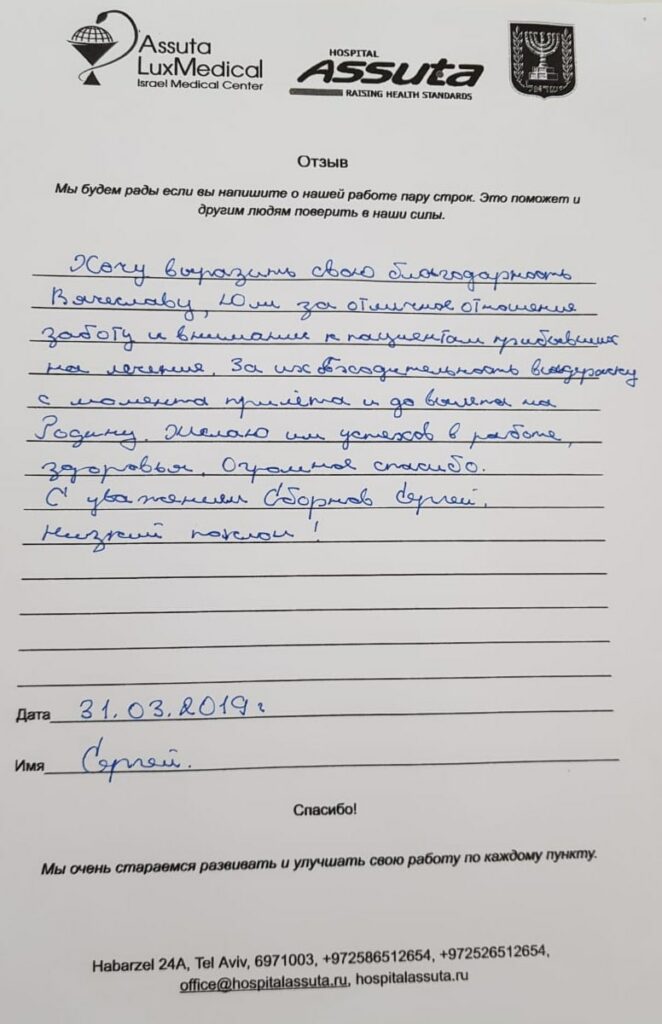 Assuta
LuxMedical
Israel Medical Center
HOSPITAL
ASSUTA
RAISING HEALTH STANDARDS
ישראל
Отзыв
Мы будем рады если вы напишите о нашей работе пару строк. Это поможет и
другим людям поверить в наши силы.
Хочу выразить свою благодарность
Вячеславу, Юли за отличное отношение
заботу и внимание к пациентам прибывших
на лечение. За их обходительность выдержку
с момента прилёта и до вылета на
Родину. Желаю им успехов в работе,
здоровья. Огромное спасибо.
С уважением Сборнов Сергей.
Низкий поклон!
Дата 31.03.2019г
Имя Сергей.
Спасибо!
Мы очень стараемся развивать и улучшать свою работу по каждому пункту.
Habarzel 24A, Tel Aviv, 6971003, +972586512654, +972526512654,
office@hospitalassuta.ru, hospitalassuta.ru